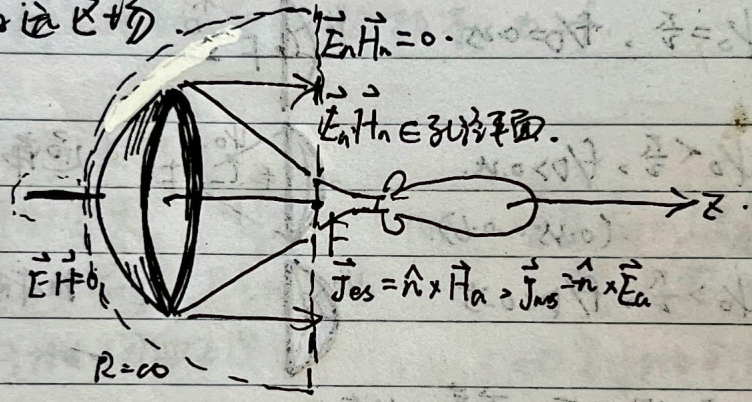 远区场.
E⃗n H⃗n = 0.
E⃗a H⃗a ∈ 孔径平面.
z.
F
E⃗ H⃗=0
J⃗es = n̂ × H⃗a, J⃗ms = n̂ × E⃗a
R=∞